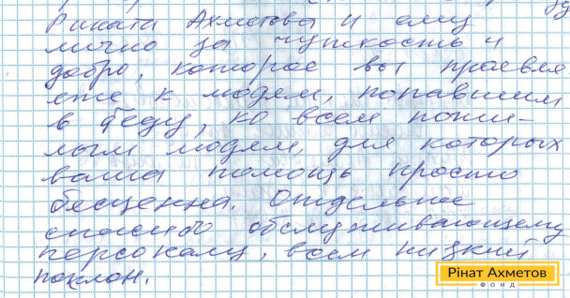 Рината Ахметова и ему
лично за чуткость и
добро, которое вы проявля
ете к людям, попавшим
в беду, ко всем пожи-
лым людям, для которых
ваша помощь просто
бесценна. Отдельное
спасибо обслуживающему
персоналу, всем низкий
поклон.
Рінат Ахметов
ФОНД